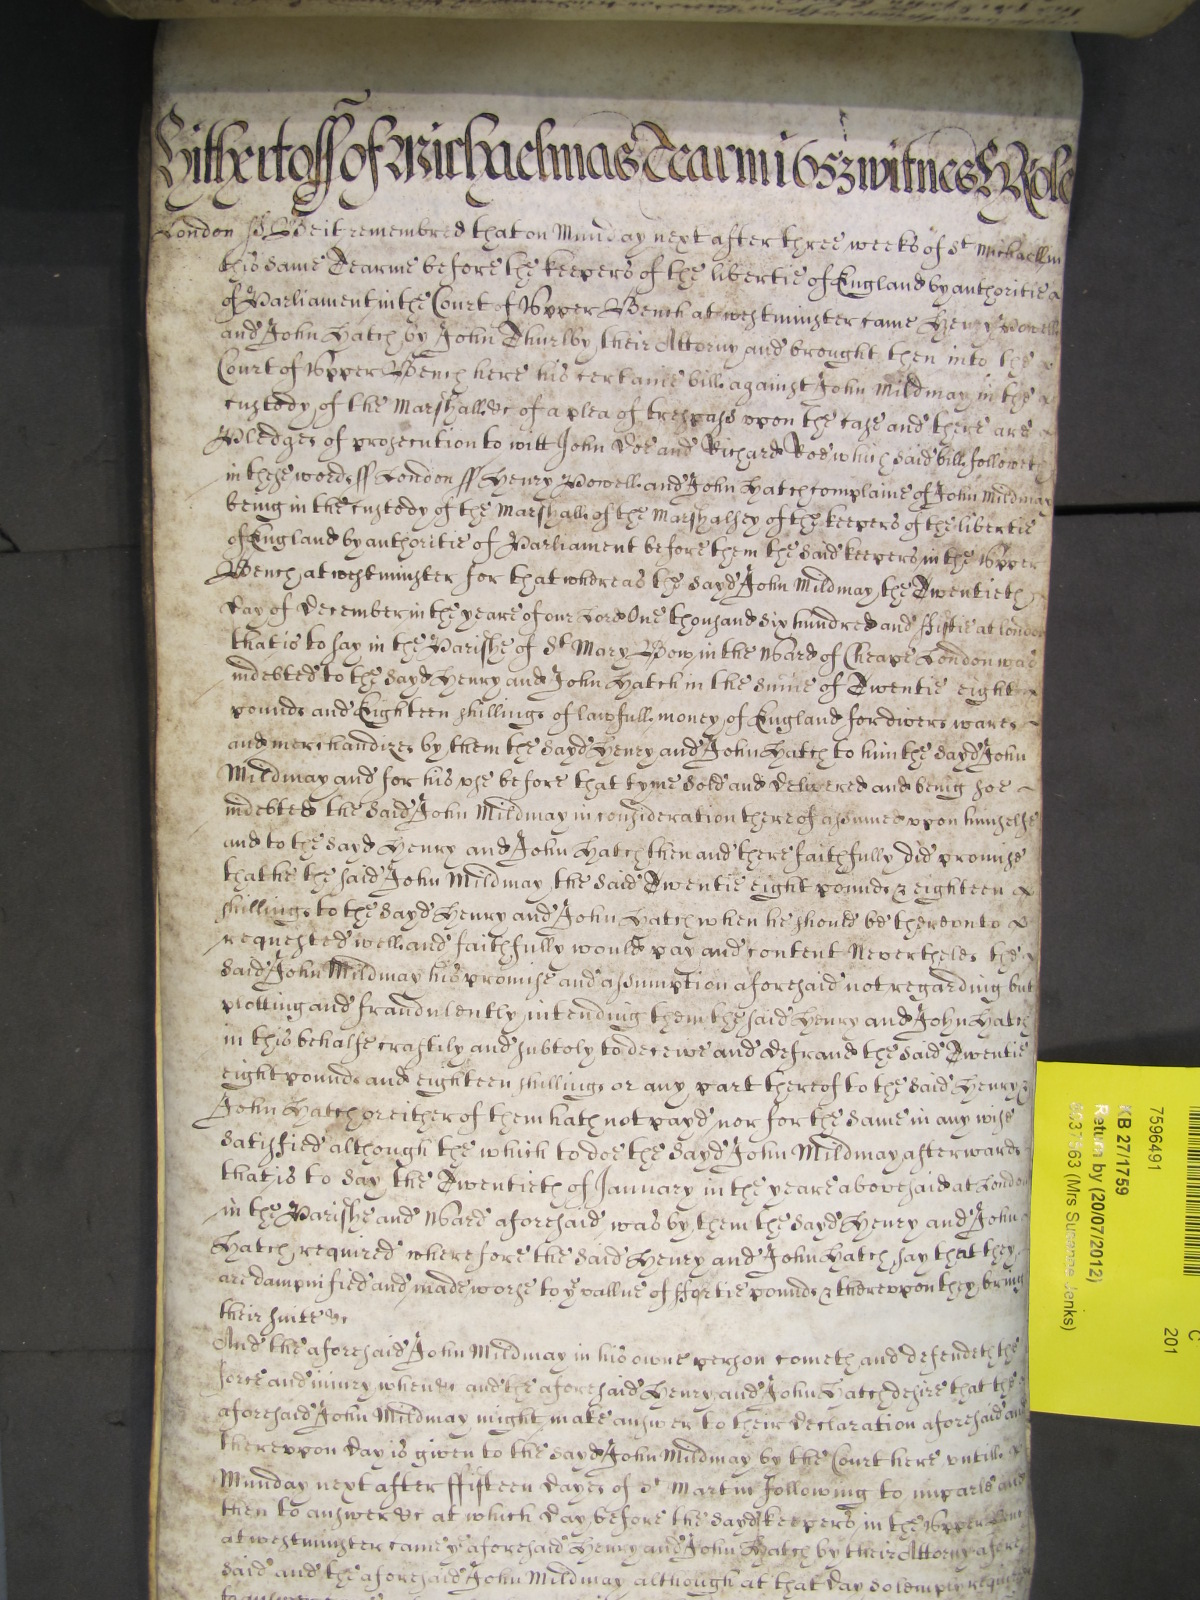 Hithertoss of Michaelmas Tearm 1653 witnes H Role
London ss Be it remembred that on Munday next after three weekes of St Michaell in
this same Tearme before the keepers of the libertie of England by authoritie
of Parliament in the Court of Upper Bench at westminster came Henry Powell
and John Hatch by John Thurlby their Attorny and brought then into the
Court of Upper Bench here his certaine bill against John Mildmay in the
custody of the Marshall &c of a plea of trespass upon the case and there are
Pledges of prosecution to witt John Doe and Richard Roe which said bill followeth
in these words ss London ss Henry Powell and John Hatch complaine of John Mildmay
being in the custody of the Marshall of the Marshalsey of the keepers of the libertie
of England by authoritie of Parliament before them the said keepers in the Upper
Bench at westminster for that whereas the sayd John Mildmay the Twentieth
day of December in the yeare of our Lord One thousand six hundred and ffiftie at London
that is to say in the Parishe of St Mary Bow in the Ward of Cheape London was
indebted to the sayd Henry and John Hatch in the summe of Twentie eight
pounds and Eighteen shillings of lawfull money of England for divers wares
and merchandizes by them the sayd Henry and John Hatch to him the sayd John
Mildmay and for his use before that tyme sold and delivered and being soe
indebted the said John Mildmay in consideration thereof assumed upon himselfe
and to the sayd Henry and John Hatch then and there faithfully did promise
that he the said John Mildmay the said Twentie eight pounds & eighteen
shillings to the sayd Henry and John Hatch when he should be thereunto
requested well and faithfully would pay and content Nevertheles the
said John Mildmay his promise and assumption aforesaid not regarding but
plotting and fraudulently intending them the said Henry and John Hatch
in this behalfe craftily and subtoly to deceive and defraud the said Twentie
eight pounds and eighteen shillings or any part thereof to the said Henry &
John Hatch or either of them hath not payd nor for the same in any wise
satisfied although the which to doe the sayd John Mildmay afterwards
that is to say the Twentieth of January in the yeare abovesaid at London
in the Parishe and Ward aforesaid was by them the sayd Henry and John
Hatch required wherefore the said Henry and John Hatch say that they
are dampnified and made worse to ye vallue of ffortie pounds & thereuppon they bring
their suite &c
And the aforesaid John Mildmay in his owne person cometh and defendeth the
force and iniury when &c and the aforesaid Henry and John Hatch desire that the
aforesaid John Mildmay might make answer to their declaration aforesaid and
thereuppon day is given to the sayd John Mildmay by the Court here untill
Munday next after ffifteen dayes of St Martin following to imparle and
then to answer &c at which day before the sayd keepers in the Upper Bench
at westminster came ye aforesaid Henry and John Hatch by their Attorny afore
said and the aforesaid John Mildmay although at that day solemply required
7596491
KB 27/1759
Return by (20/07/2012)
(Mrs Susanne Jenks)
C
201